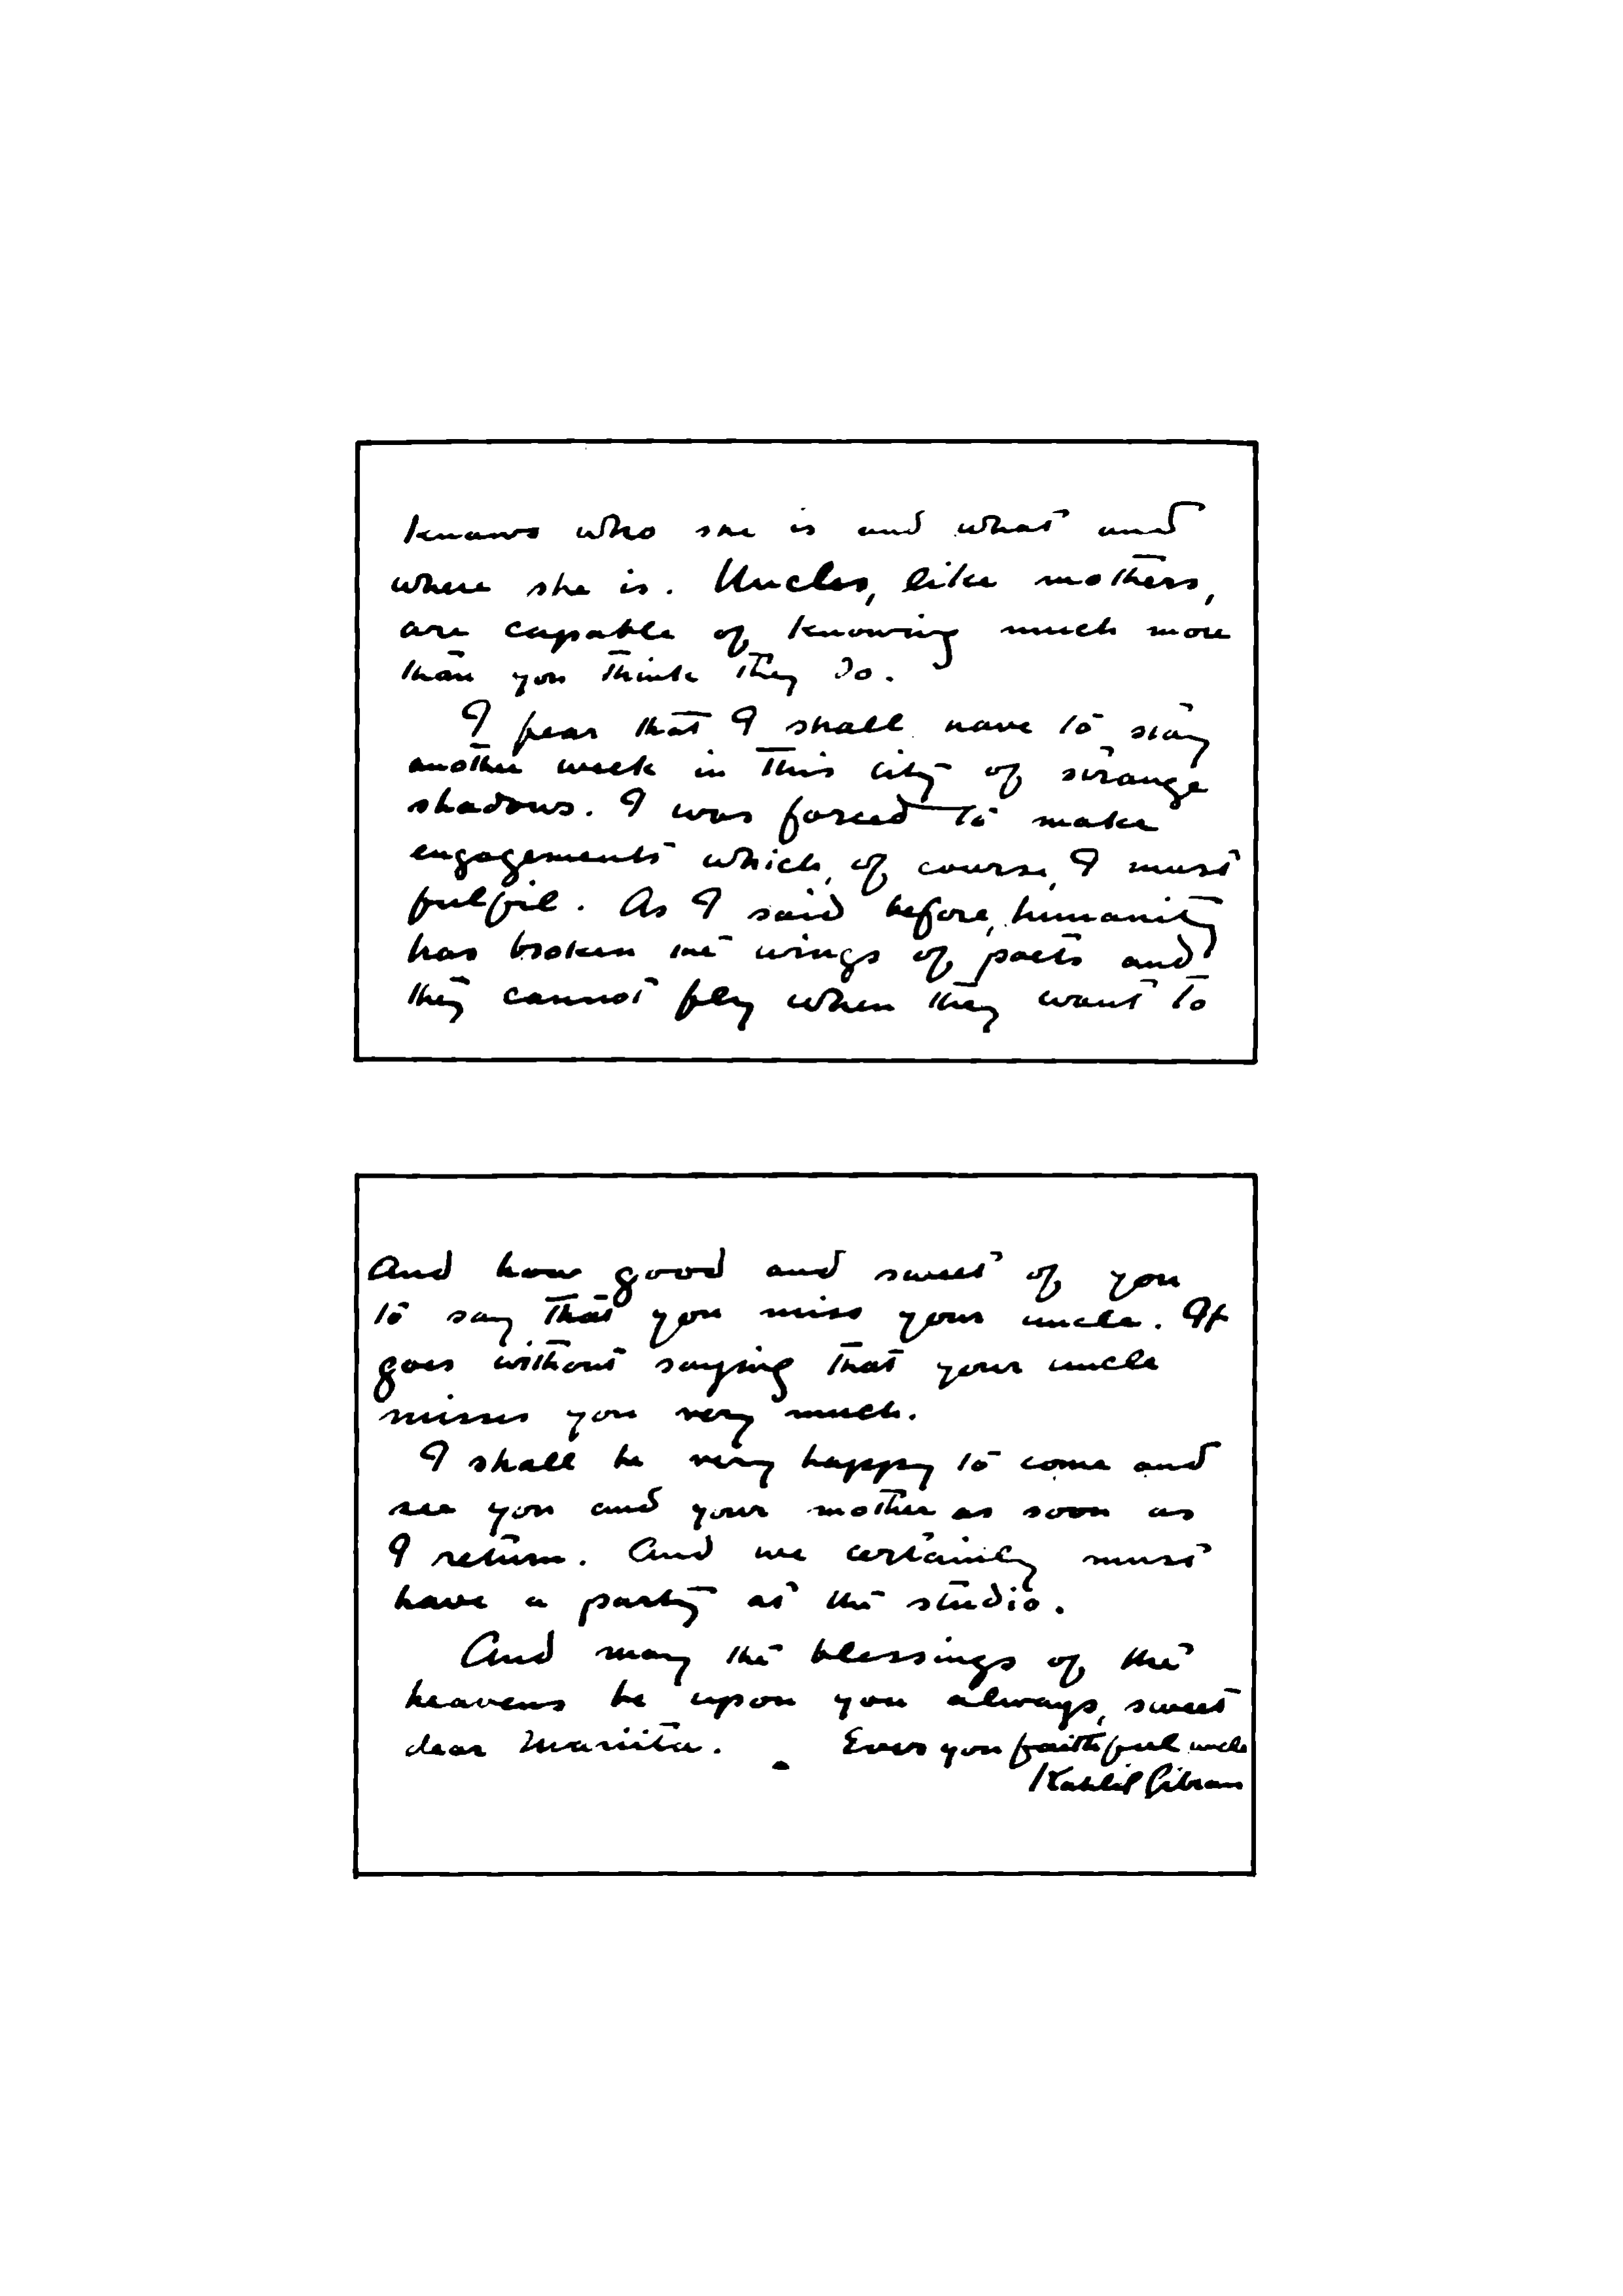 knows who she is and what and
where she is. Uncles, like mothers,
are capable of knowing much more
than you think they do.
I fear that I shall have to stay
another week in this city of strange
shadows. I was forced to make
engagements which, of course, I must
fulfil. As I said before, humanity
has broken the wings of poets and
they cannot fly when they want to
And how good and sweet of you
to say that you miss your uncle. It
goes without saying that your uncle
misses you very much.
I shall be very happy to come and
see you and your mother as soon as
I return. And we certainly must
have a party at the studio.
And may the blessings of the
heavens be upon you always, sweet
dear Mariita. Ever you faithful uncle
Kahlil Gibran